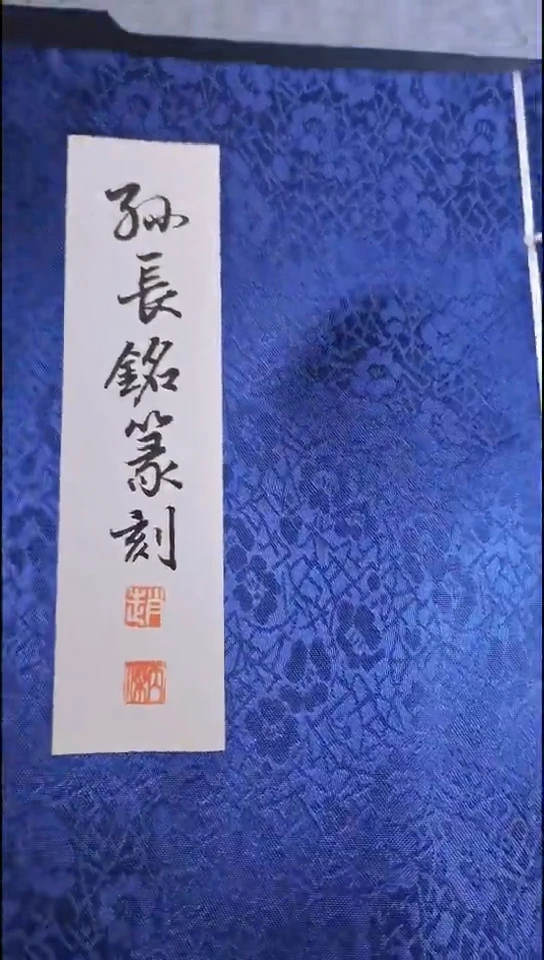 孙長銘篆刻
趙